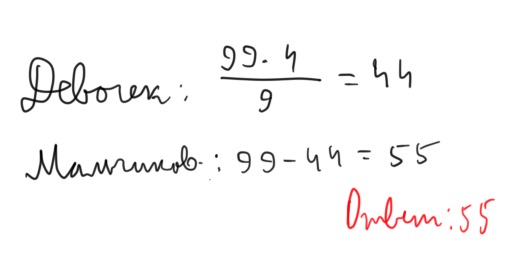 Девочек: 99·4/9 = 44
Мальчиков: 99-44 = 55
Ответ: 55